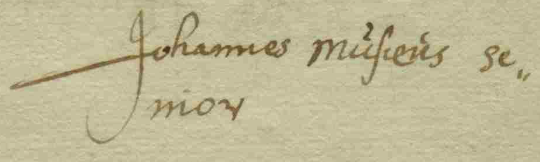 Johannes Müsiens se„
nior